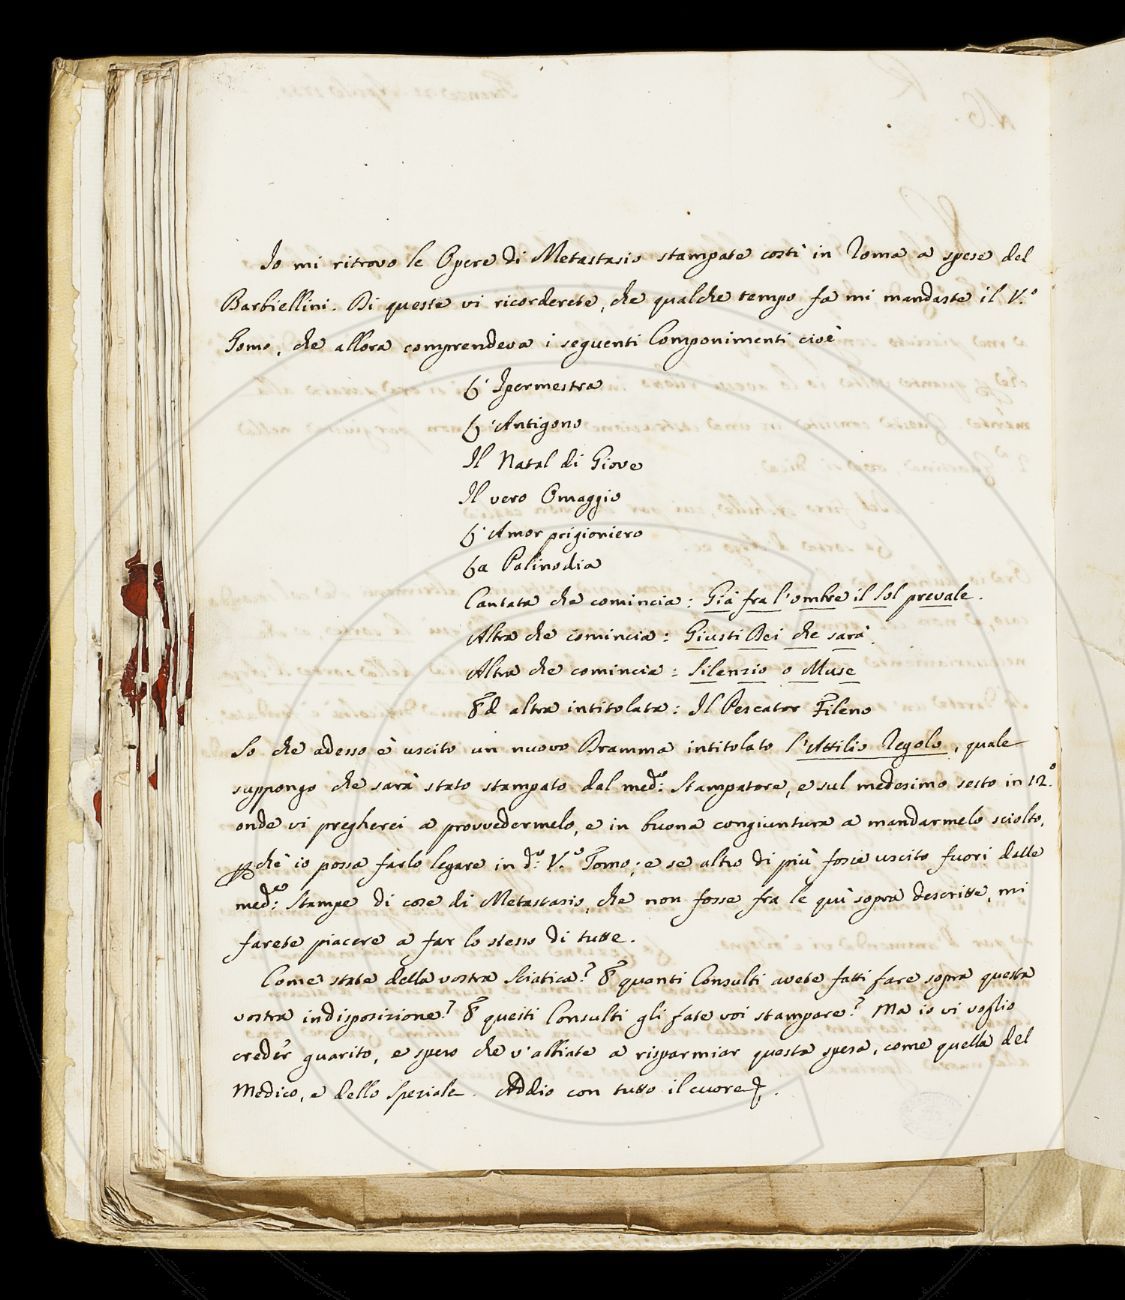 Io mi ritrovo le Opere di Metastasio stampate costì in Roma a spese del
Barbiellini. Di queste vi ricorderete, che qualche tempo fa mi mandaste il V.º
Tomo, che allora comprendeva i seguenti Componimenti cioè
L'Ipermestra
L'Antigono
Il Natal di Giove
Il vero Omaggio
L'Amor prigioniero
La Palinodia
Cantata che comincia: Già fra l'ombre il Sol prevale.
Altra che comincia: Giusti Dei che sarà.
Altra che comincia: Silenzio o Muse
Ed altra intitolata: Il Pescator Fileno
So che adesso è uscito un nuovo Dramma intitolato l'Attilio Regolo, quale
suppongo che sarà stato stampato dal med.º Stampatore, e sul medesimo sesto in 12.º
onde vi pregherei a provvedermelo, e in buona congiuntura a mandarmelo sciolto,
pchè io possa farlo legare in d.º V.º Tomo; e se altro di più fosse uscito fuori dalle
med.e Stampe di cose di Metastasio, che non fosse fra le quì sopra descritte, mi
farete piacere a far lo stesso di tutte.
Come state della vostra Sciatica? E quanti Consulti avete fatti fare sopra questa
vostra indisposizione? E questi Consulti gli fate voi stampare? Ma io vi voglio
creder guarito, e spero che v'abbiate a risparmiar questa spesa, come quella del
Medico, e dello Speziale. Addio con tutto il cuore